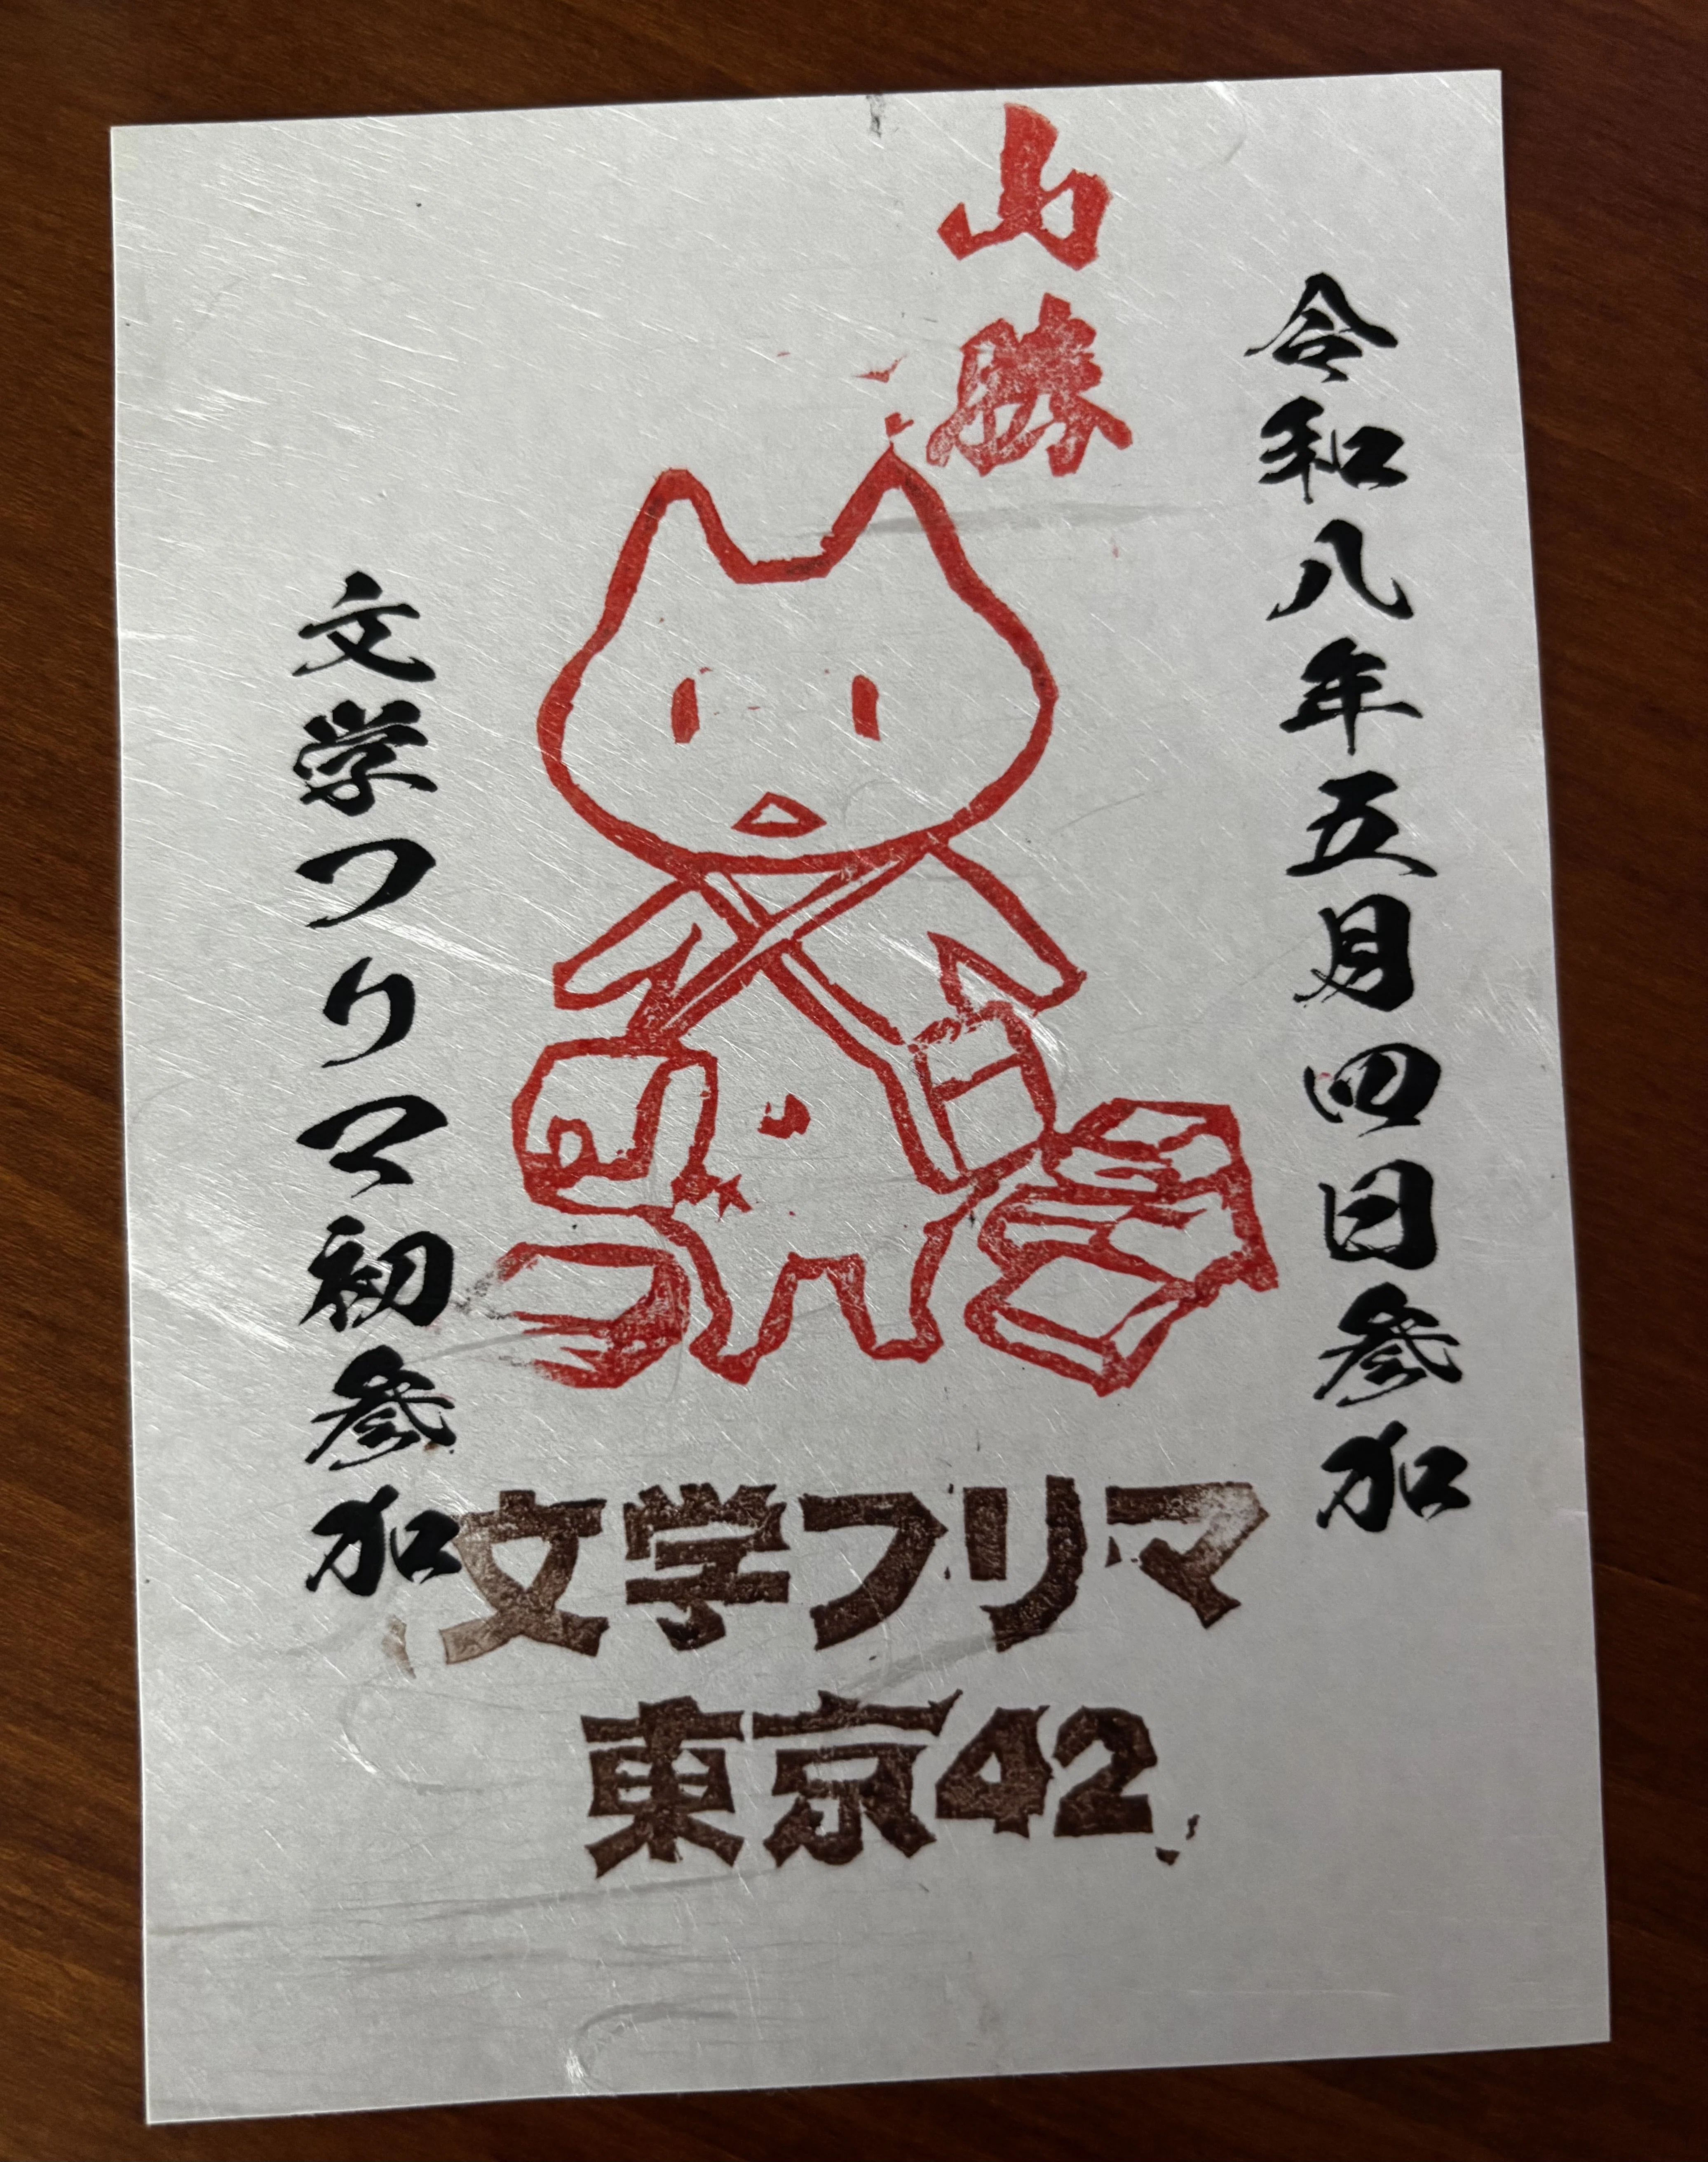 令和八年五月四日参加
山勝
文学フリマ初参加
文学フリマ
東京42